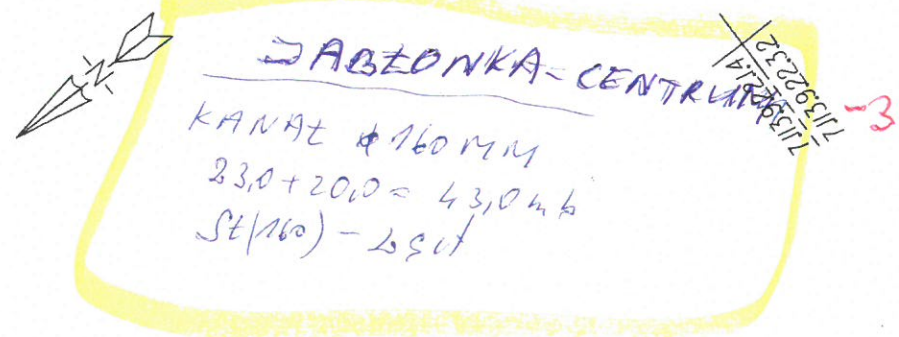 JABŁONKA-CENTRUM
KANAŁ ϕ 160 MM
23,0+20,0= 43,0 mb
St(160) - 2 szt
7.113.9.22.1.4
7.113.9.22.3.2
-3
N